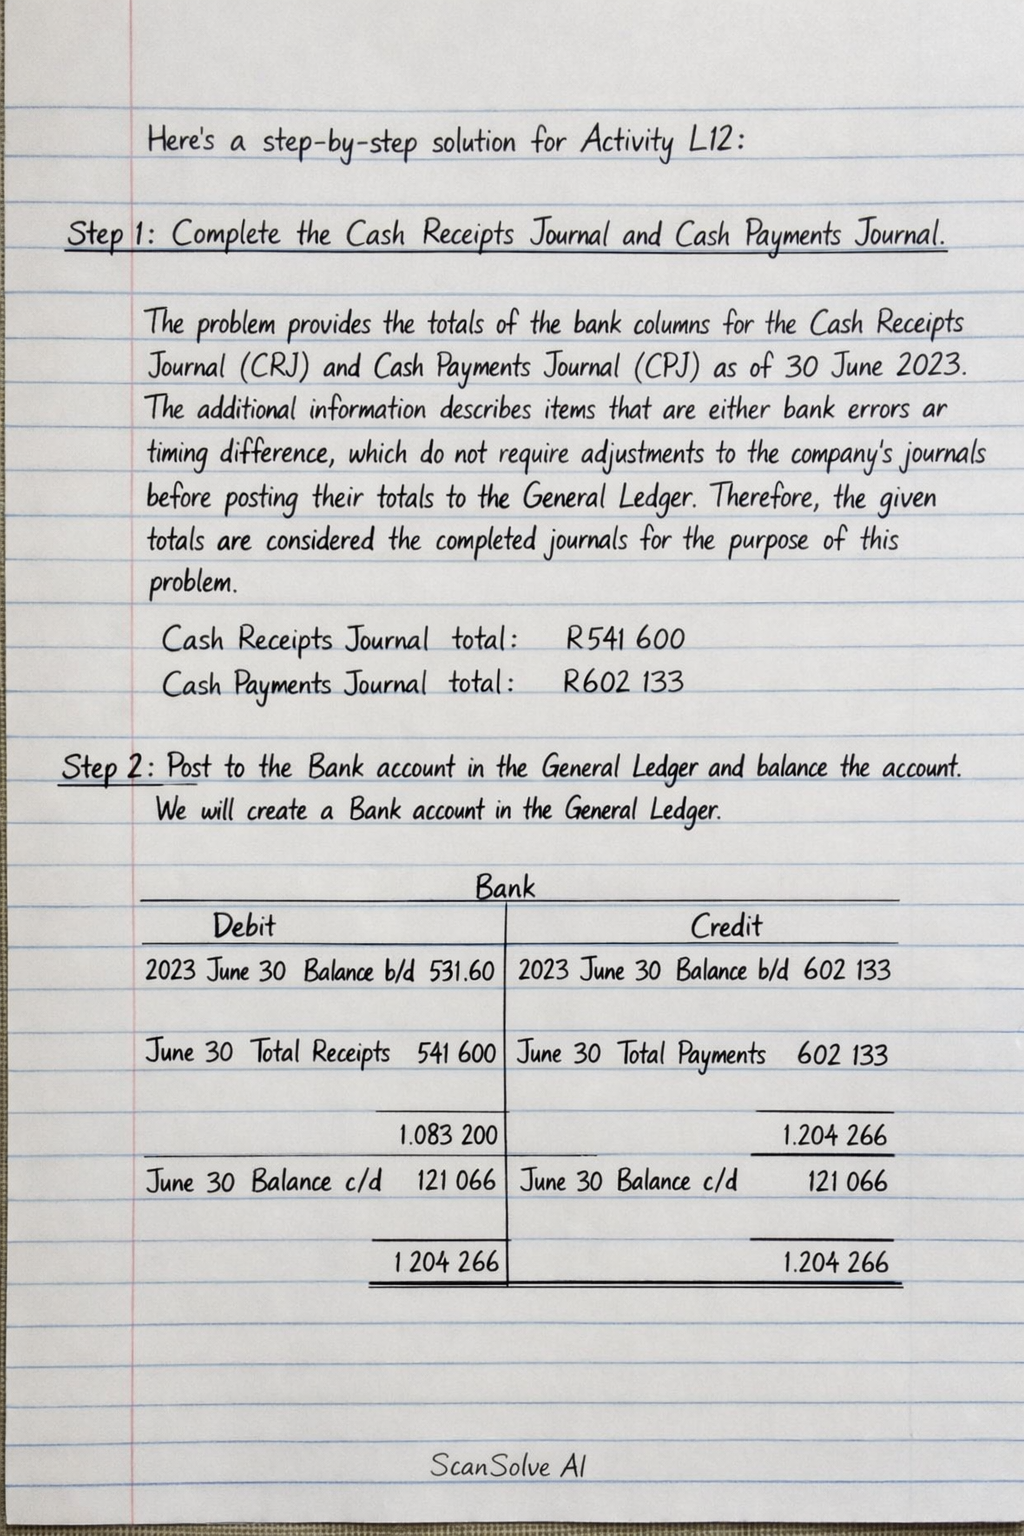 Here's a step-by-step solution for Activity L12:
Step 1: Complete the Cash Receipts Journal and Cash Payments Journal.
The problem provides the totals of the bank columns for the Cash Receipts
Journal (CRJ) and Cash Payments Journal (CPJ) as of 30 June 2023.
The additional information describes items that are either bank errors ar
timing difference, which do not require adjustments to the company's journals
before posting their totals to the General Ledger. Therefore, the given
totals are considered the completed journals for the purpose of this
problem.
Cash Receipts Journal total: R541 600
Cash Payments Journal total: R602 133
Step 2: Post to the Bank account in the General Ledger and balance the account.
We will create a Bank account in the General Ledger.
Bank
Debit Credit
2023 June 30 Balance b/d 531.60 2023 June 30 Balance b/d 602 133
June 30 Total Receipts 541 600 June 30 Total Payments 602 133
1.083 200 1.204 266
June 30 Balance c/d 121 066 June 30 Balance c/d 121 066
1 204 266 1.204 266
ScanSolve AI